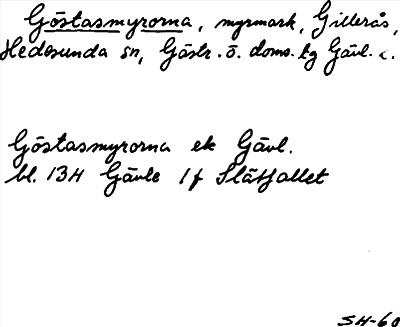 Göstasmyrorna, myrmark, Gillerås,
Hedesunda sn, Gästr. ö. doms. tg Gävl. L.
Göstasmyrorna ek Gävl.
bl. 13H Gävle 1f Slätfallet
SH-60